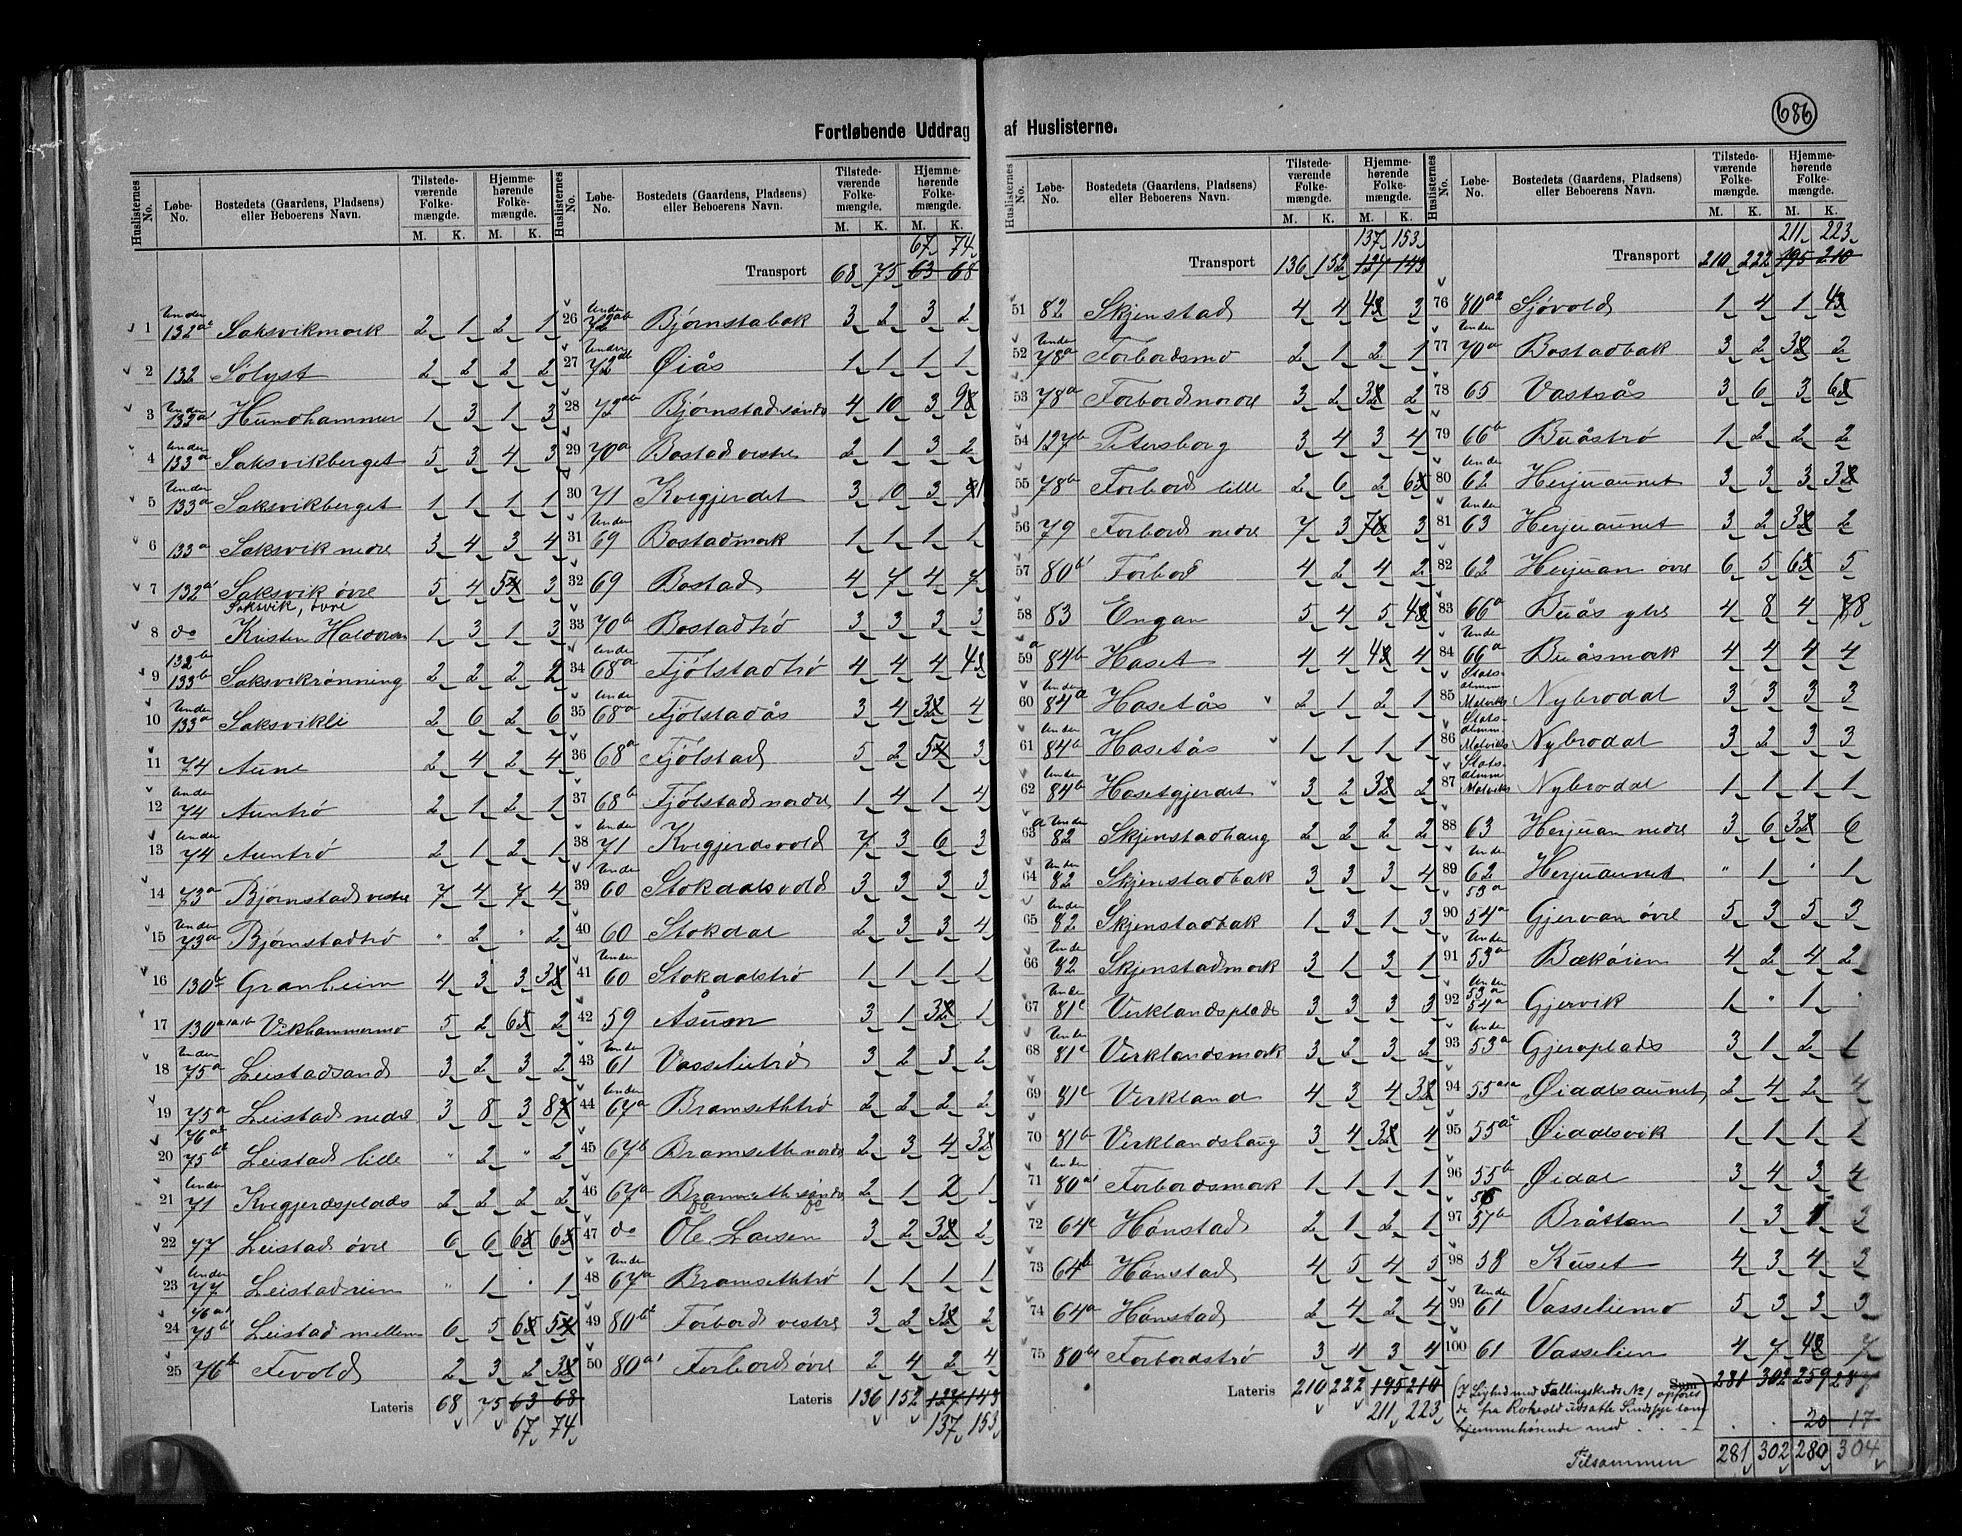 686
Fortløbende Uddrag af Huslisterne.
Huslisternes No. Løbe-No. Bostedets (Gaardens, Pladsens) eller Beboerens Navn. Tilstedeværende Folkemængde. Hjemmehørende Folkemængde.
M. K. M. K.
1 Under 132a2 Saksvikmark 2 1 2 1
2 132 Sølyst 2 2 2 2
3 Under 133a1 Hundhammer 1 3 1 3
4 Under 133a Saksvikberget 5 3 4 3
5 Under 133a Saksvikberget 1 1 1 1
6 133a Saksvik nedre 3 4 3 4
7 132a1 Saksvik øvre 5 4 5 3
8 do Saksvik, øvre Kristen Halvorsen 1 3 1 3
9 132b 133b Saksvikrønning 2 2 2 2
10 Under 133a Saksvikli 2 6 2 6
11 74 Aune 2 4 2 4
12 Under 74 Auntrø 2 1 2 1
13 Under 74 Auntrø 2 1 2 1
14 73a Bjørnstad vestre 7 4 7 4
15 Under 73a Bjørnstadtrø " 2 " 2
16 130c Granheim 4 3 3 3
17 130a1a1b Vikhammermo 5 2 6 2
18 Under 75a Leistadsand 3 2 3 2
19 75a Leistad nedre 3 8 3 8
20 76a2 75b2 Leistad lille " 2 " 2
21 Under 71 Kvegjerdsplads 2 2 2 2
22 77 Leistad øvre 6 6 6 6
23 Under 77 Leistadreim " 1 " 1
24 76a1 75b1 Leistad mellem 6 5 6 5
25 76b Fevold 2 3 2 3
Lateris 68 75 63 68
67 74
67 74
Transport 68 75 63 68
26 Under 72ab Bjørnstabak 3 2 3 2
27 Under 72ab Øiås 1 1 1 1
28 72ab Bjørnstad søndre 4 10 3 9
29 70a Bostad vestre 2 1 3 2
30 71 Kvegjerdet 3 10 3
31 Under 69 Bostadmark 1 1 1 1
32 69 Bostad 4 7 4 7
33 70b Bostadtrø 3 3 3 3
34 Under 68a Fjølstadtrø 4 4 4 4
35 Under 68a Fjølstadås 3 4 3 4
36 68a Fjølstad 5 2 5 3
37 68b Fjølstad nordre 1 4 1 4
38 Under 71 Kvegjerdsvold 7 3 6 3
39 60 Stokdalsvold 3 3 3 3
40 60 Stokdal 2 3 3 4
41 Under 60 Stokdalstrø 1 1 1 1
42 59 Åsum 3 1 3 1
43 Under 61 Vasselietrø 3 2 3 2
44 Under 67a Bramsethtrø 2 2 2 2
45 67b Bramseth nordre 2 3 4 3
46 67a Bramseth søndre 2 1 2 1
47 do do do Ole Larsen 3 2 3 2
48 Under 67a Bramsethtrø 1 1 1 1
49 80b2 Forbord vestre 3 2 3 2
50 80a1 Forbord øvre 2 4 2 4
Lateris 136 152 127 143
137 153
137 153
Transport 136 152 127 143
51 82 Skjenstad 4 4 4 3
52 Under 78a Forbordsmo 2 1 2 1
53 78a Forbord nordre 3 2 3 2
54 127b Petersborg 3 4 3 4
55 78b Forbord lille 2 6 2 6
56 79 Forbord nedre 7 3 7 3
57 80b1 Forbord 4 2 4 2
58 83 Engan 5 4 5 4
59a 84b Haset 4 4 4 4
60 Under 84a Hasetås 2 1 2 1
61 Under 84b Hasetås 1 1 1 1
62 Under 84b Hasetgjerdet 3 2 3 2
63a Under 82 Skjenstadhaug 2 2 2 2
64 Under 82 Skjenstadbak 3 3 3 4
65 Under 82 Skjenstadbak 1 3 1 3
66 Under 82 Skjenstadmark 3 1 3 1
67 Under 81c Virklandsplads 3 3 3 3
68 Under 81c Virklandsmark 3 2 3 2
69 81c Virkland 4 3 4 3
70 81b Virklandshaug 3 4 3 4
71 Under 80a1 Forbordsmark 1 1 1 1
72 64c Hønstad 2 1 2 1
73 64b Hønstad 4 5 4 5
74 64a Hønstad 2 4 2 4
75 80b1 Forbordstrø 3 4 3 4
Lateris 210 222 195 210
211 223
211 223
Transport 210 222 195 210
76 80a2 Sjøvold 1 4 1 4
77 Under 70a Bostadbak 3 2 3 2
78 65 Vastrås 3 6 3 6
79 66b Buåstrø 1 2 2 2
80 Under 62 Herjuaunet 3 3 3 3
81 Under 63 Herjuaunet 3 2 3 2
82 62 Herjuan øvre 6 5 6 5
83 66a Buås ytre 4 8 4 8
84 Under 66a Buåsmark 4 4 4 4
85 Stats-almm Malviks Nybrodal 3 3 3 3
86 Stats-almm Malviks Nybrodal 3 2 3 3
87 Stats-almm Malviks Nybrodal 1 1 1 1
88 63 Herjuan nedre 3 6 3 6
89 Under 62 Herjuaunet " 1 " 1
90 53a 54a Gjervan øvre 5 3 5 3
91 Under 53a Bækøren 4 2 4 2
92 Under 53a 54a Gjervik 1 " 1
93 Under 53a Gjervplads 3 1 2 1
94 55a1a Øidalsaunet 2 4 2 4
95 55a2 Øidalsvik 1 1 1 1
96 55b Øidal 3 4 3 4
97 56 57b Bråttan 1 3 1 3
98 58 Kuset 4 3 4 3
99 Under 61 Vasseliemo 5 3 3 3
100 61 Vasselien 4 7 4 7
Sum 281 302 259 287
(I Lighed med Tællingskreds No 1 opføres
de fra Rotvold udsatte Sindssyge som
hjemmehørende med . . . . 20 17
Tilsammen 281 302 280 304